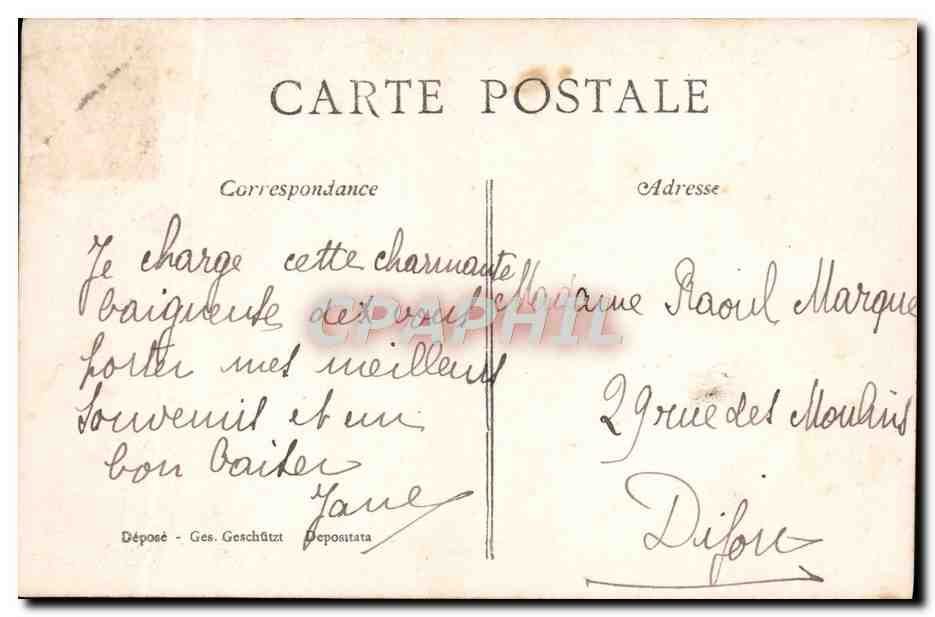 CARTE POSTALE
Correspondance
Je charge cette charmante
baigneuse de vous
porter mes meilleurs
souvenirs et un
bon baiser
Jane
Déposé - Ges. Geschützt Depositata
Adresse
Madame Raoul Marque
29 rue des Moulins
Dijon
CPAPHIL